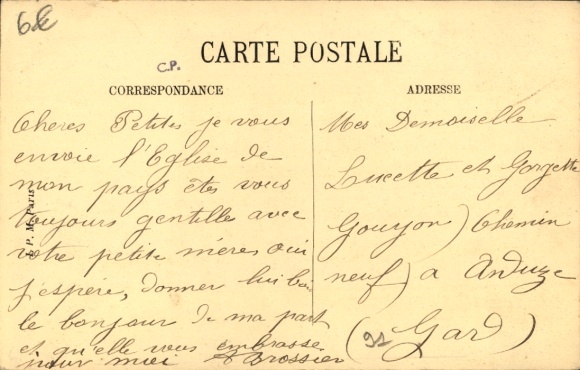 6
C.P.
CARTE POSTALE
CORRESPONDANCE
Cheres Petites je vous
envoie l'Eglise de
mon pays êtes vous
toujours gentille avec
votre petite mères, oui
j'espère, donner lui
le bonjour de ma part
et qu'elle vous embrasse
pour moi Brossier
J. P. M. Paris
ADRESSE
Mes Demoiselle
Lucette et Gorgette
Gouyon) Chemin
neuf) a Anduze
(Gard)